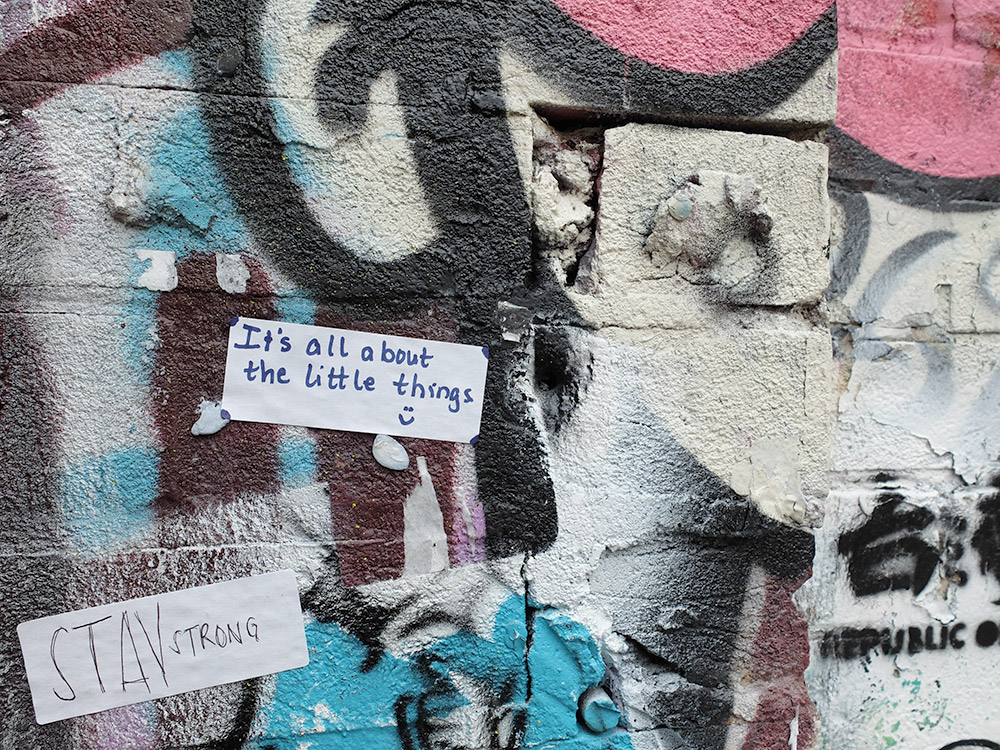 It's all about
the little things
STAY STRONG
REPUBLIC O